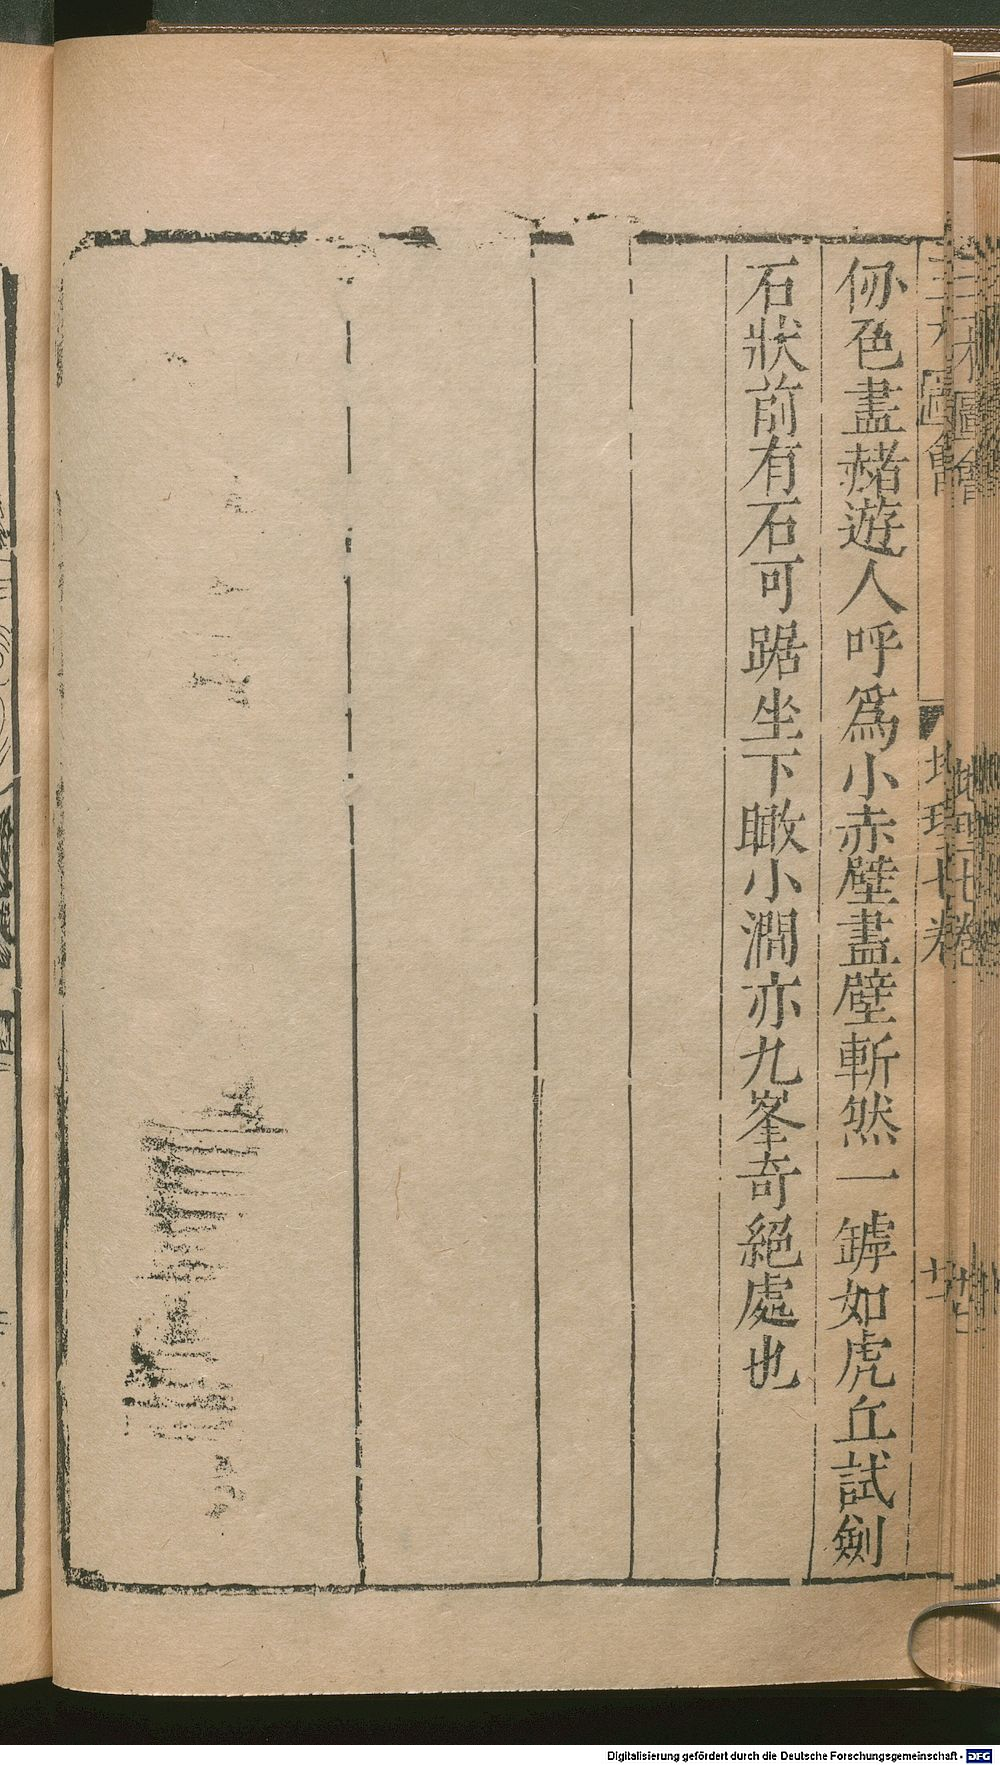 仞色盡赭遊人呼爲小赤壁盡壁斬然一罅如虎丘試劍
石狀前有石可踞坐下瞰小澗亦九峯奇絕處也
圖會
地理七卷
Digitalisierung gefördert durch die Deutsche Forschungsgemeinschaft - DFG